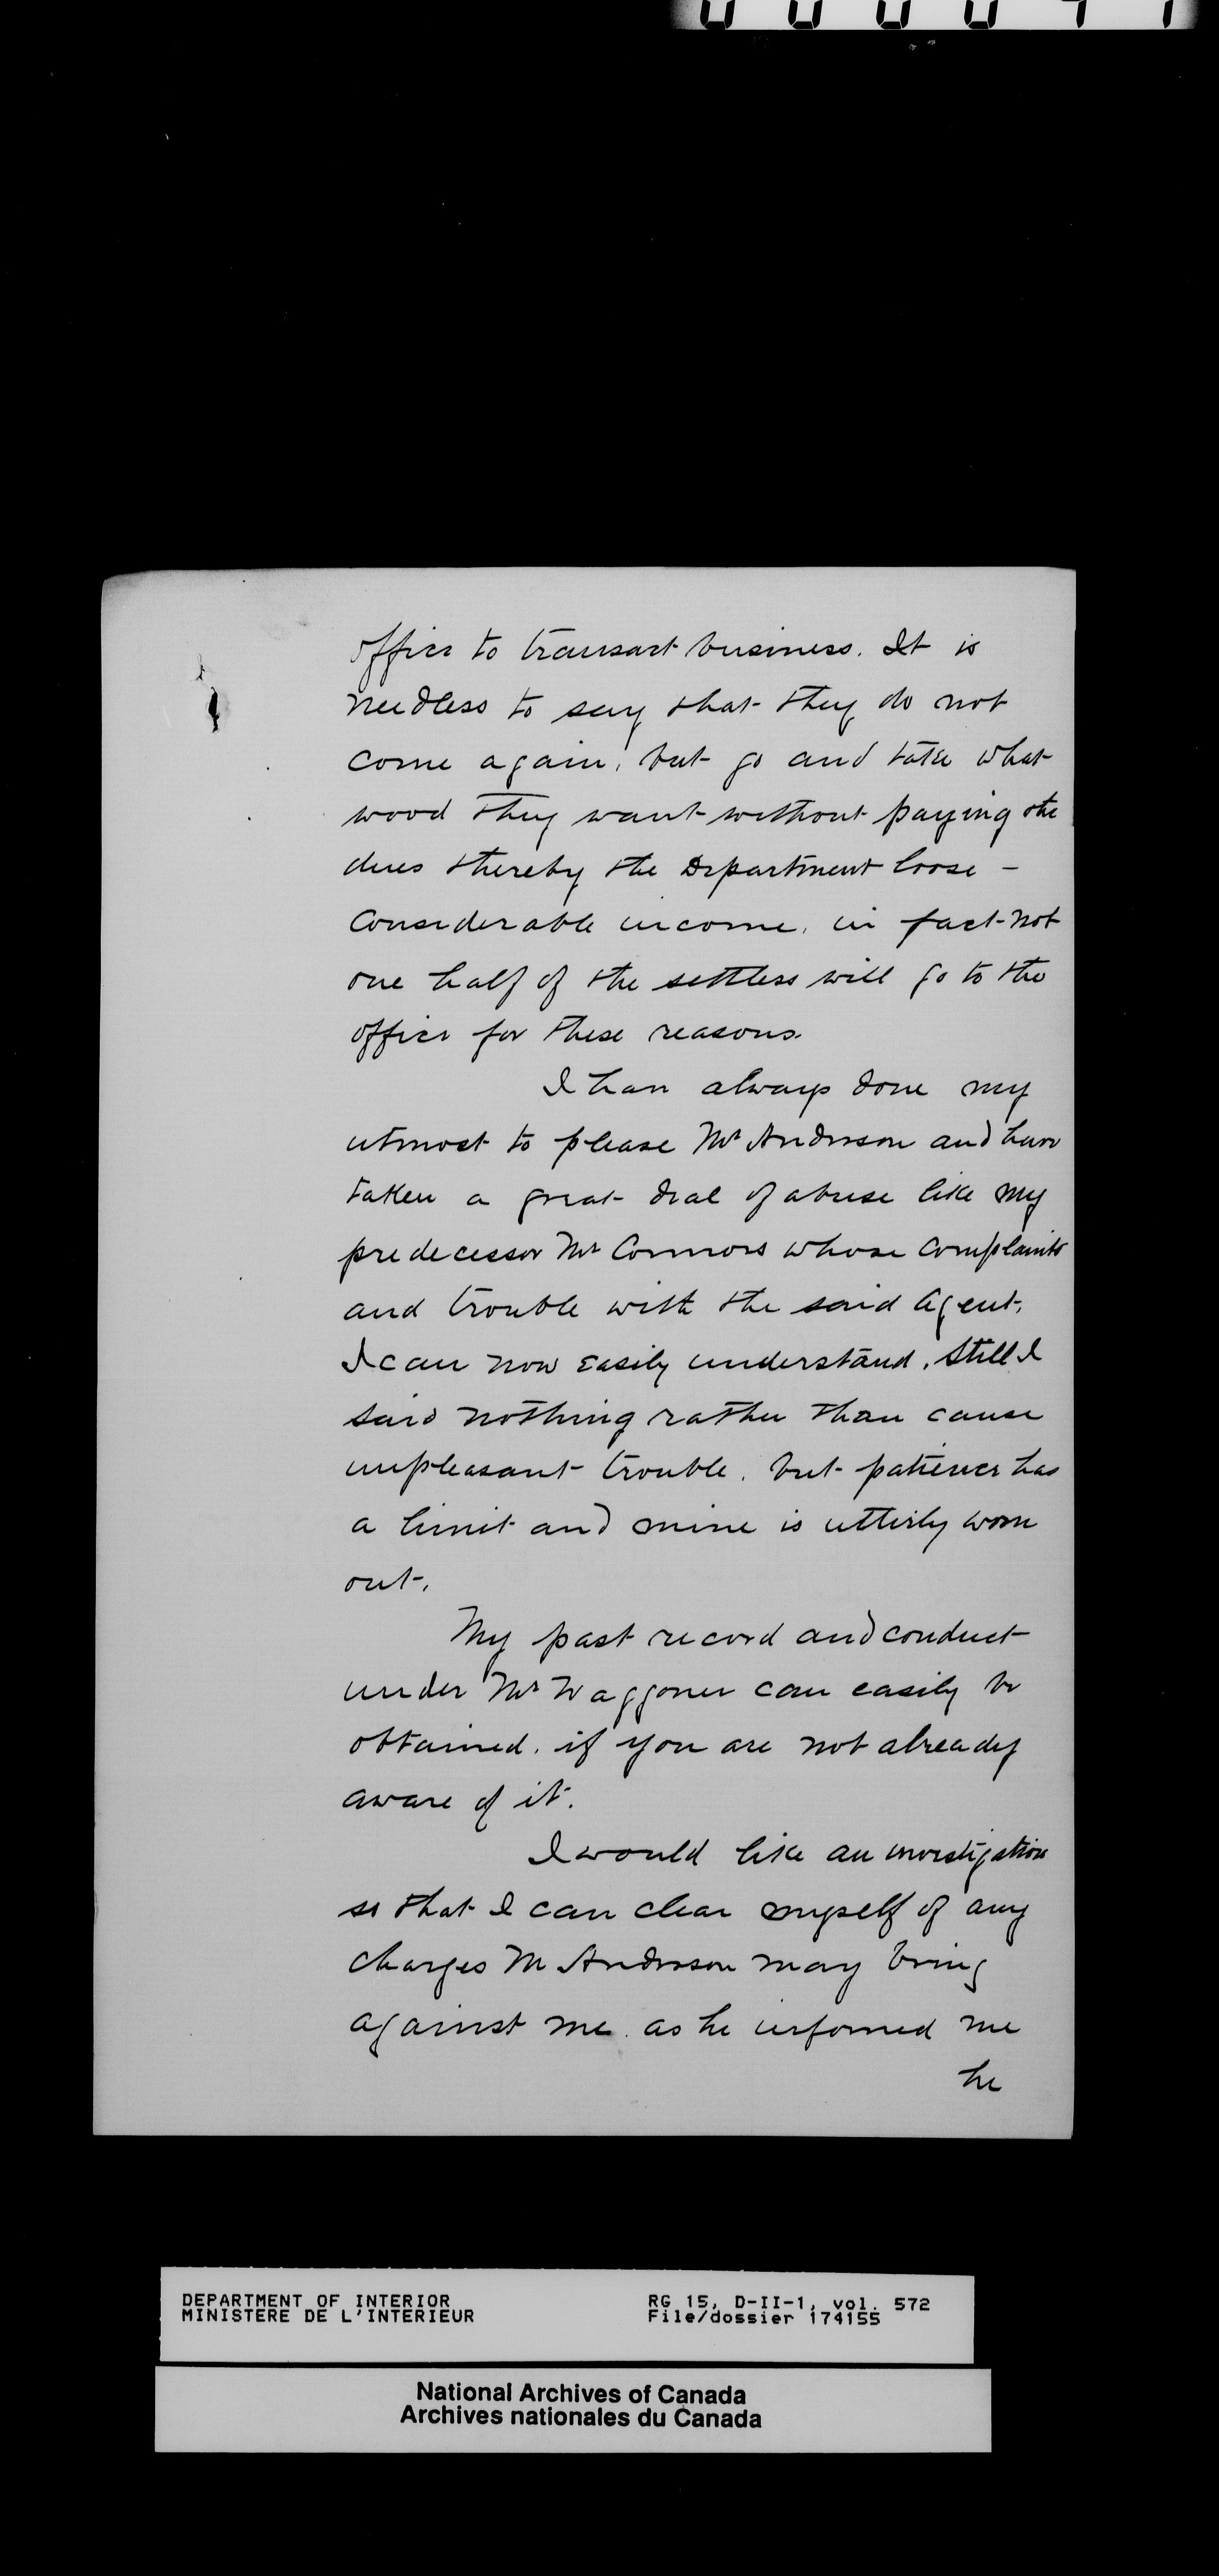 office to transact business. It is
needless to say that they do not
come again, but go and take what
wood they want without paying the
dues thereby the Department loose -
considerable income, in fact not
one half of the settlers will go to the
office for these reasons.
I have always done my
utmost to please Mr Anderson and have
taken a great deal of abuse like my
predecessor Mr Connors whose complaints
and trouble with the said Agent,
I can now easily understand, Still I
said nothing rather than cause
unpleasant trouble, but patience has
a limit and mine is utterly worn
out.
My past record and conduct
under Mr Waggoner can easily be
obtained, if you are not already
aware of it.
I would like an investigation
so that I can clear myself of any
charges Mr Anderson may bring
against me as he informed me
he
DEPARTMENT OF INTERIOR RG 15, D-II-1, vol. 572
MINISTERE DE L'INTERIEUR File/dossier 174155
National Archives of Canada
Archives nationales du Canada